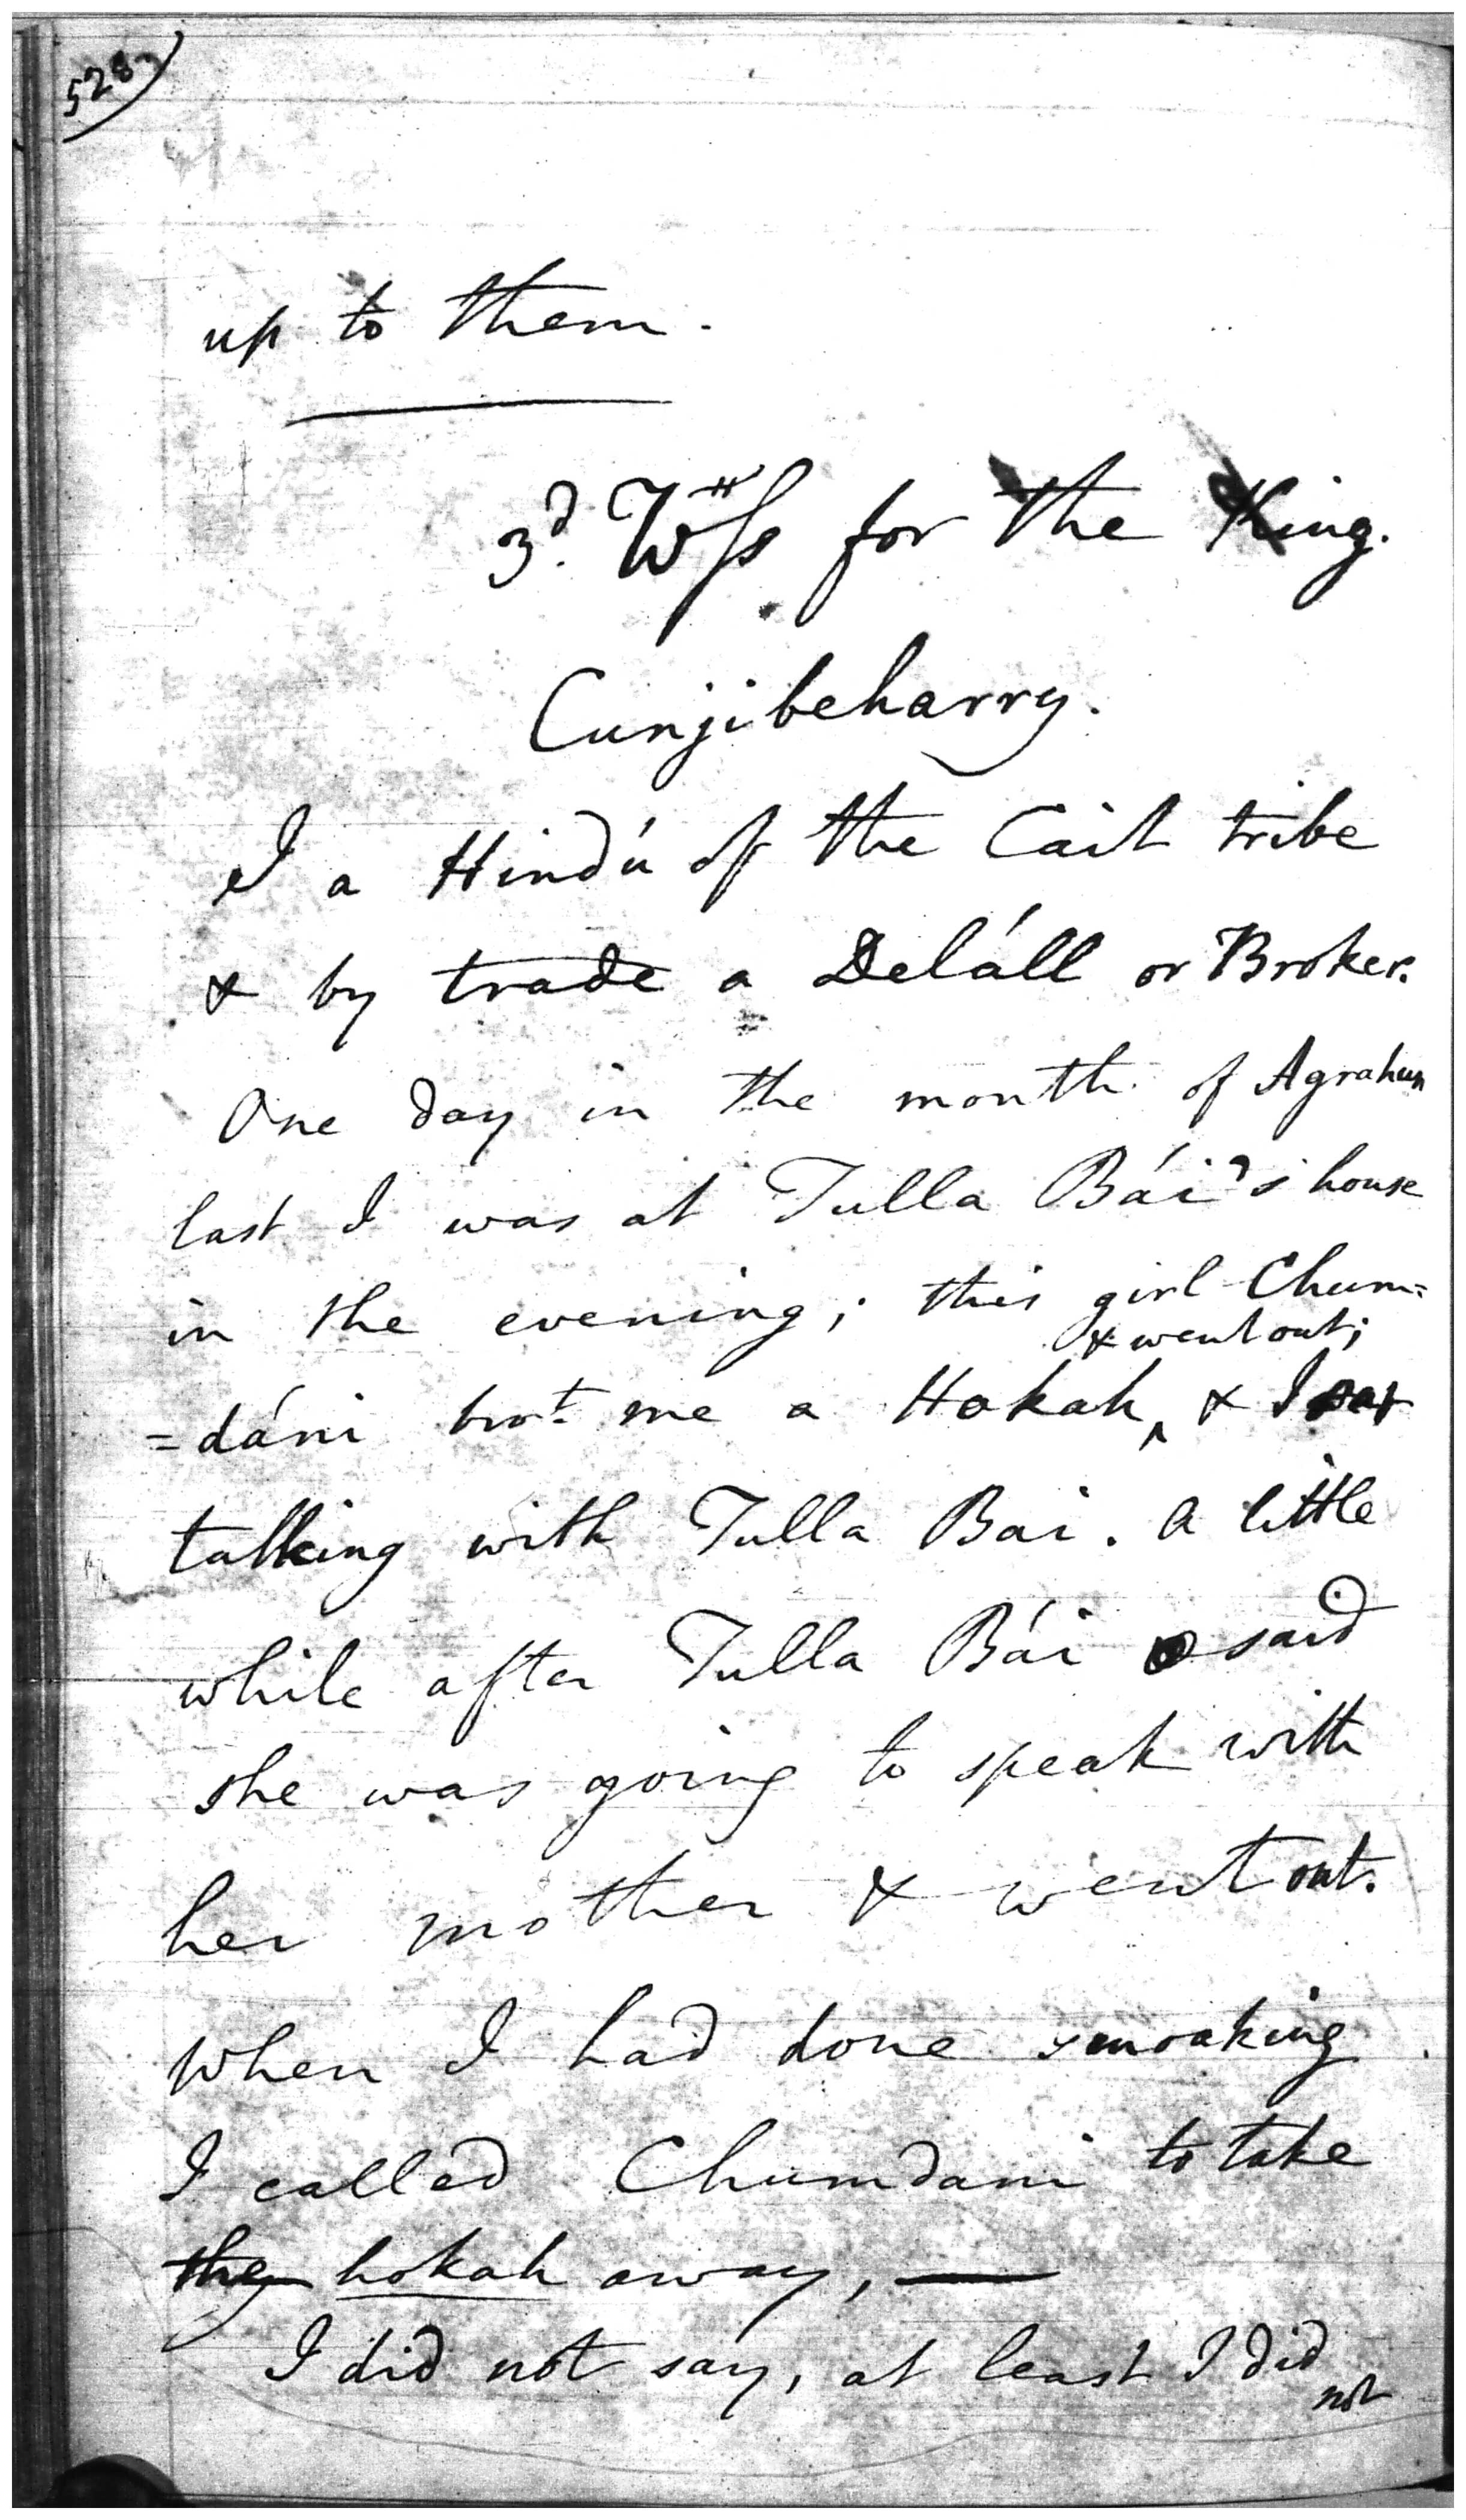 528
up to them.
3d. Wss for the King.
Cunjibeharry.
I a Hindú of the Cait tribe
& by trade a Deláll or Broker.
One day in the month of Agrahun
last I was at Tulla Bái's house
in the evening; this girl Chum=
& went out;
=dáni brot. me a Hokah, & I sat
talking with Tulla Bai. A little
while after Tulla Bái said
she was going to speak with
her mother & went out.
When I had done smoaking
I called Chumdani to take
the hokah away,
I did not say, at least I did
not